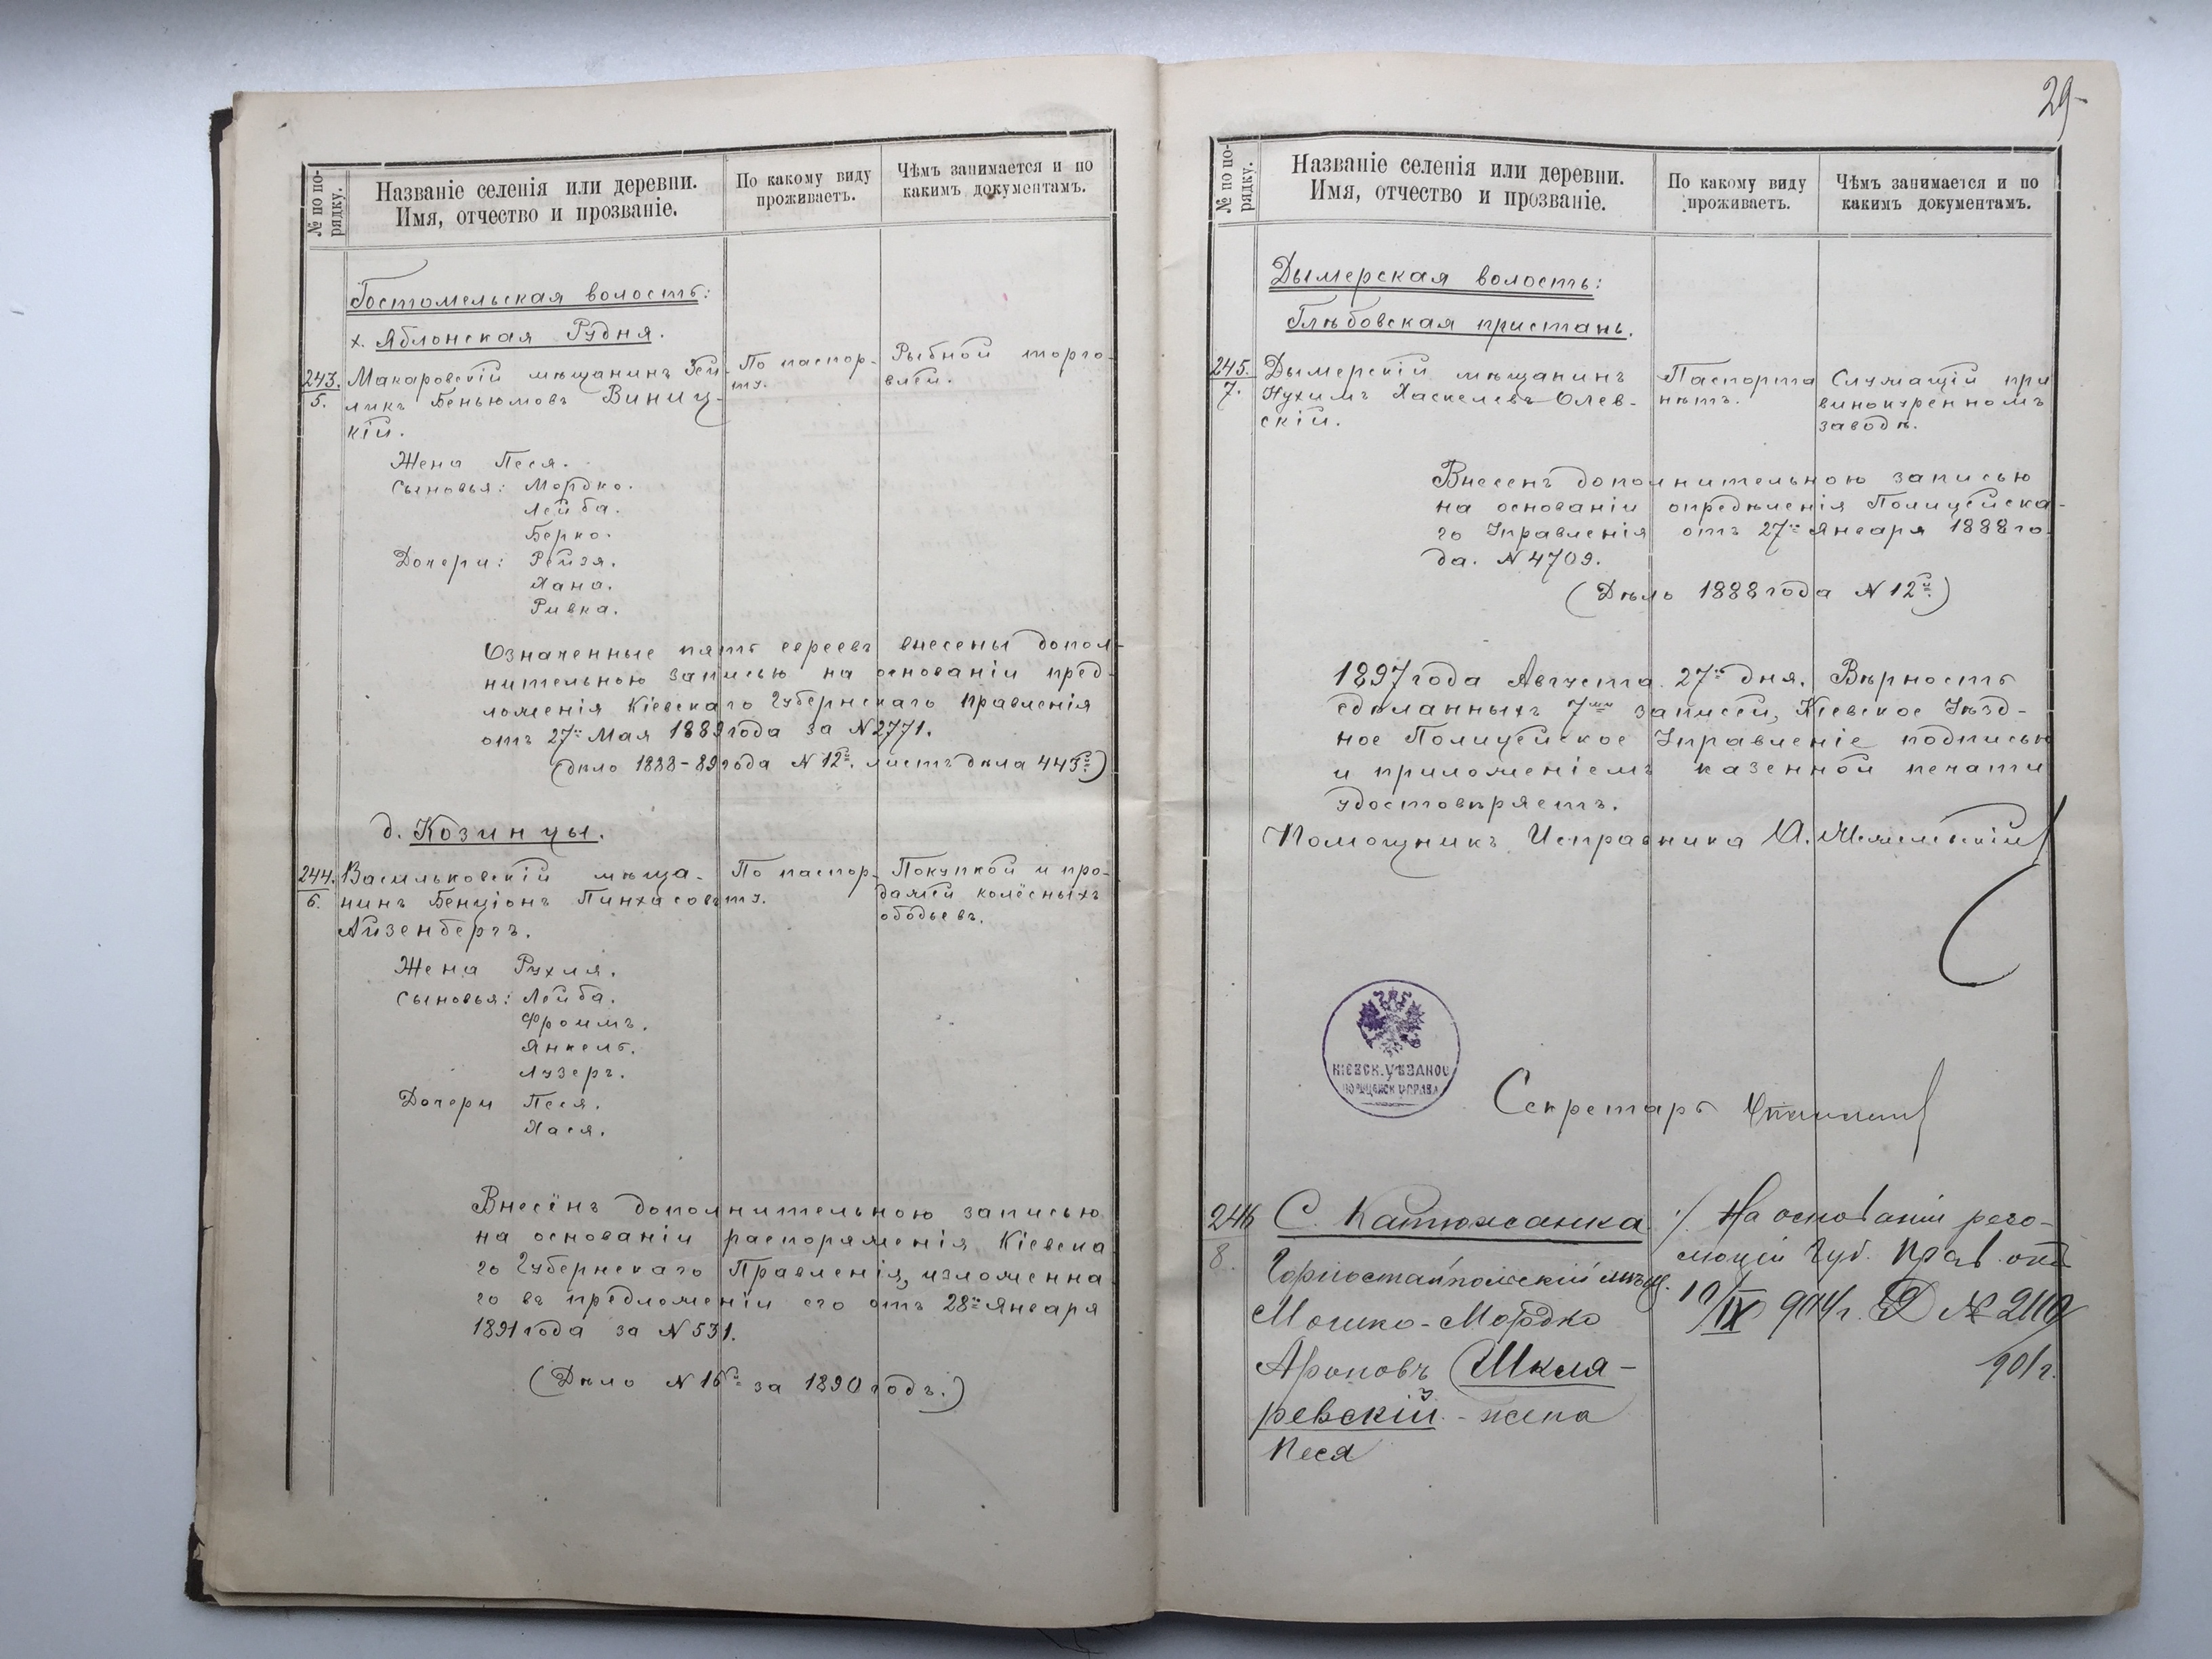 № по по-
рядку.
Названіе селенія или деревни.
Имя, отчество и прозваніе.
По какому виду
проживаетъ.
Чѣмъ занимается и по
какимъ документамъ.
Гостомельская волость:
х. Яблонская Рудня.
243.
5.
Макаровскій мѣщанинъ
Беньюмовъ Виниц-
кій.
По паспор-
ту.
Рыбной торго-
влей.
Жена Песя.
Сыновья: Мордко.
Лейба.
Берко.
Дочери: Рейзя.
Хана.
Ривка.
Означенные пять евреевъ внесены допол-
нительною записью на основаніи пред-
ложенія Кіевскаго Губернскаго Правленія
отъ 27го Мая 1889 года за N 2771.
(дѣло 1888-89 года N 12й. листъ дѣла 443й)
д. Козинцы.
244.
6.
Васильковскій мѣща-
нинъ Бенціонъ Пинхасовъ
Айзенбергъ.
По паспор-
ту.
Покупкой и про-
дажей колёсныхъ
ободьевъ.
Жена Рухля.
Сыновья: Лейба.
Фроимъ.
Янкель.
Лузеръ.
Дочери Песя.
Хася.
Внесёнъ дополнительною записью
на основаніи распоряженія Кіевска
го Губернскаго Правленія, изложенна
го въ предложеніи его отъ 28го Января
1891 года за N 531.
(Дѣло N 16й за 1890 годъ.)
29
№ по по-
рядку.
Названіе селенія или деревни.
Имя, отчество и прозваніе.
По какому виду
проживаетъ.
Чѣмъ занимается и по
какимъ документамъ.
Дымерская волость:
Глѣбовская пристань.
245.
7.
Дымерскій мѣщанинъ
Нухимъ Хаскелевъ Олев-
скій.
Паспорта
нѣтъ.
Служащій при
винокуренномъ
заводѣ.
Внесенъ дополнительною записью
на основаніи опредѣленія Полицейска-
го Управленія отъ 27го Января 1888 го
да. N 4709.
(Дѣло 1888 года N 12й.)
1897 года Августа 27го дня. Вѣрность
сдѣланныхъ 7ми записей, Кіевское Уѣзд-
ное Полицейское Управленіе подписью
и приложеніемъ казенной печати
удостовѣряетъ.
Помощникъ Исправника
КІЕВСК. УѢЗДНОЕ
ПОЛИЦЕЙСК УПРАВЛ
Секретарь
246
8.
С. Катюжанка
Горностайпольскій мѣщ.
Мошко-Мордко
Ароновъ Шкля-
ревскій - жена
Песя
На основаніи резо-
люціи Губ. Прав. отъ
10/IX 904 г. № 2110
901 г.